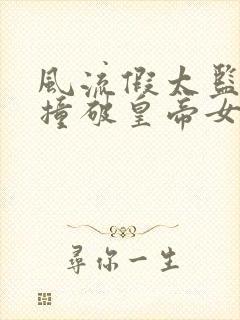 風流假太監
撞破皇帝女
尋你一生